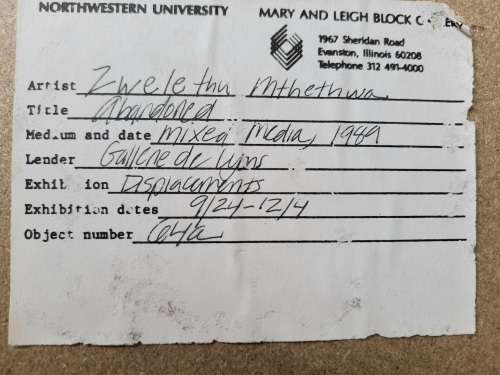 NORTHWESTERN UNIVERSITY MARY AND LEIGH BLOCK
1967 Sheridan Road
Evanston, Illinois 60208
Telephone 312 491-4000
Artist Zwelethu Mthethwa
Title Abandoned
Medium and date Mixed Media, 1989
Lender Gallerie de
Exhib ion Displacements
Exhibition dates 9/24-12/4
Object number 64a